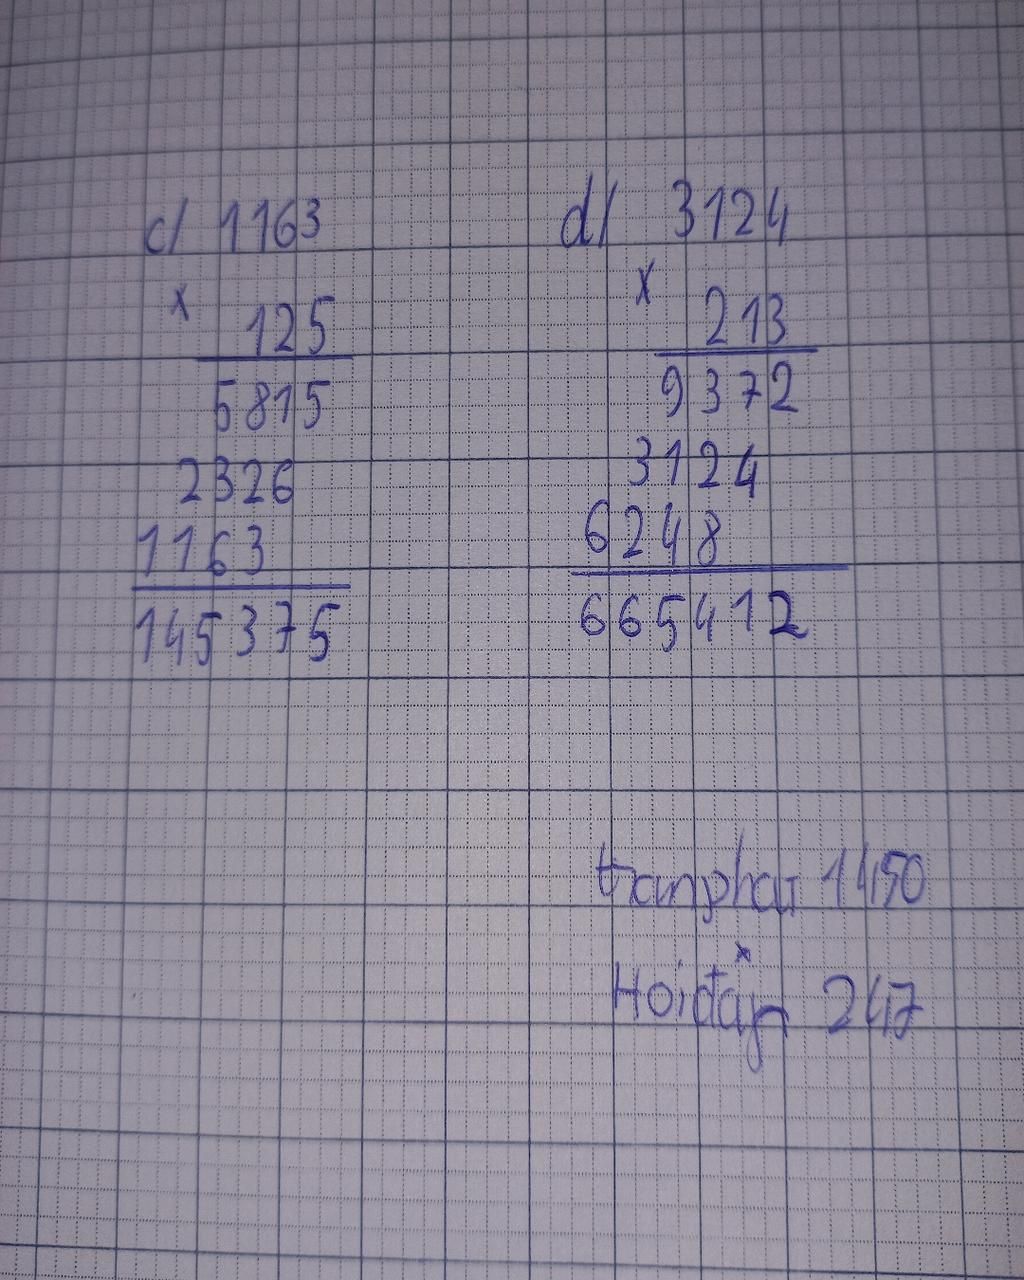 c/ 1163
x
125
5815
2326
1163
145375
d/ 3124
x
213
9372
3124
6248
665412
tranphat 1450
Hoiđáp 247